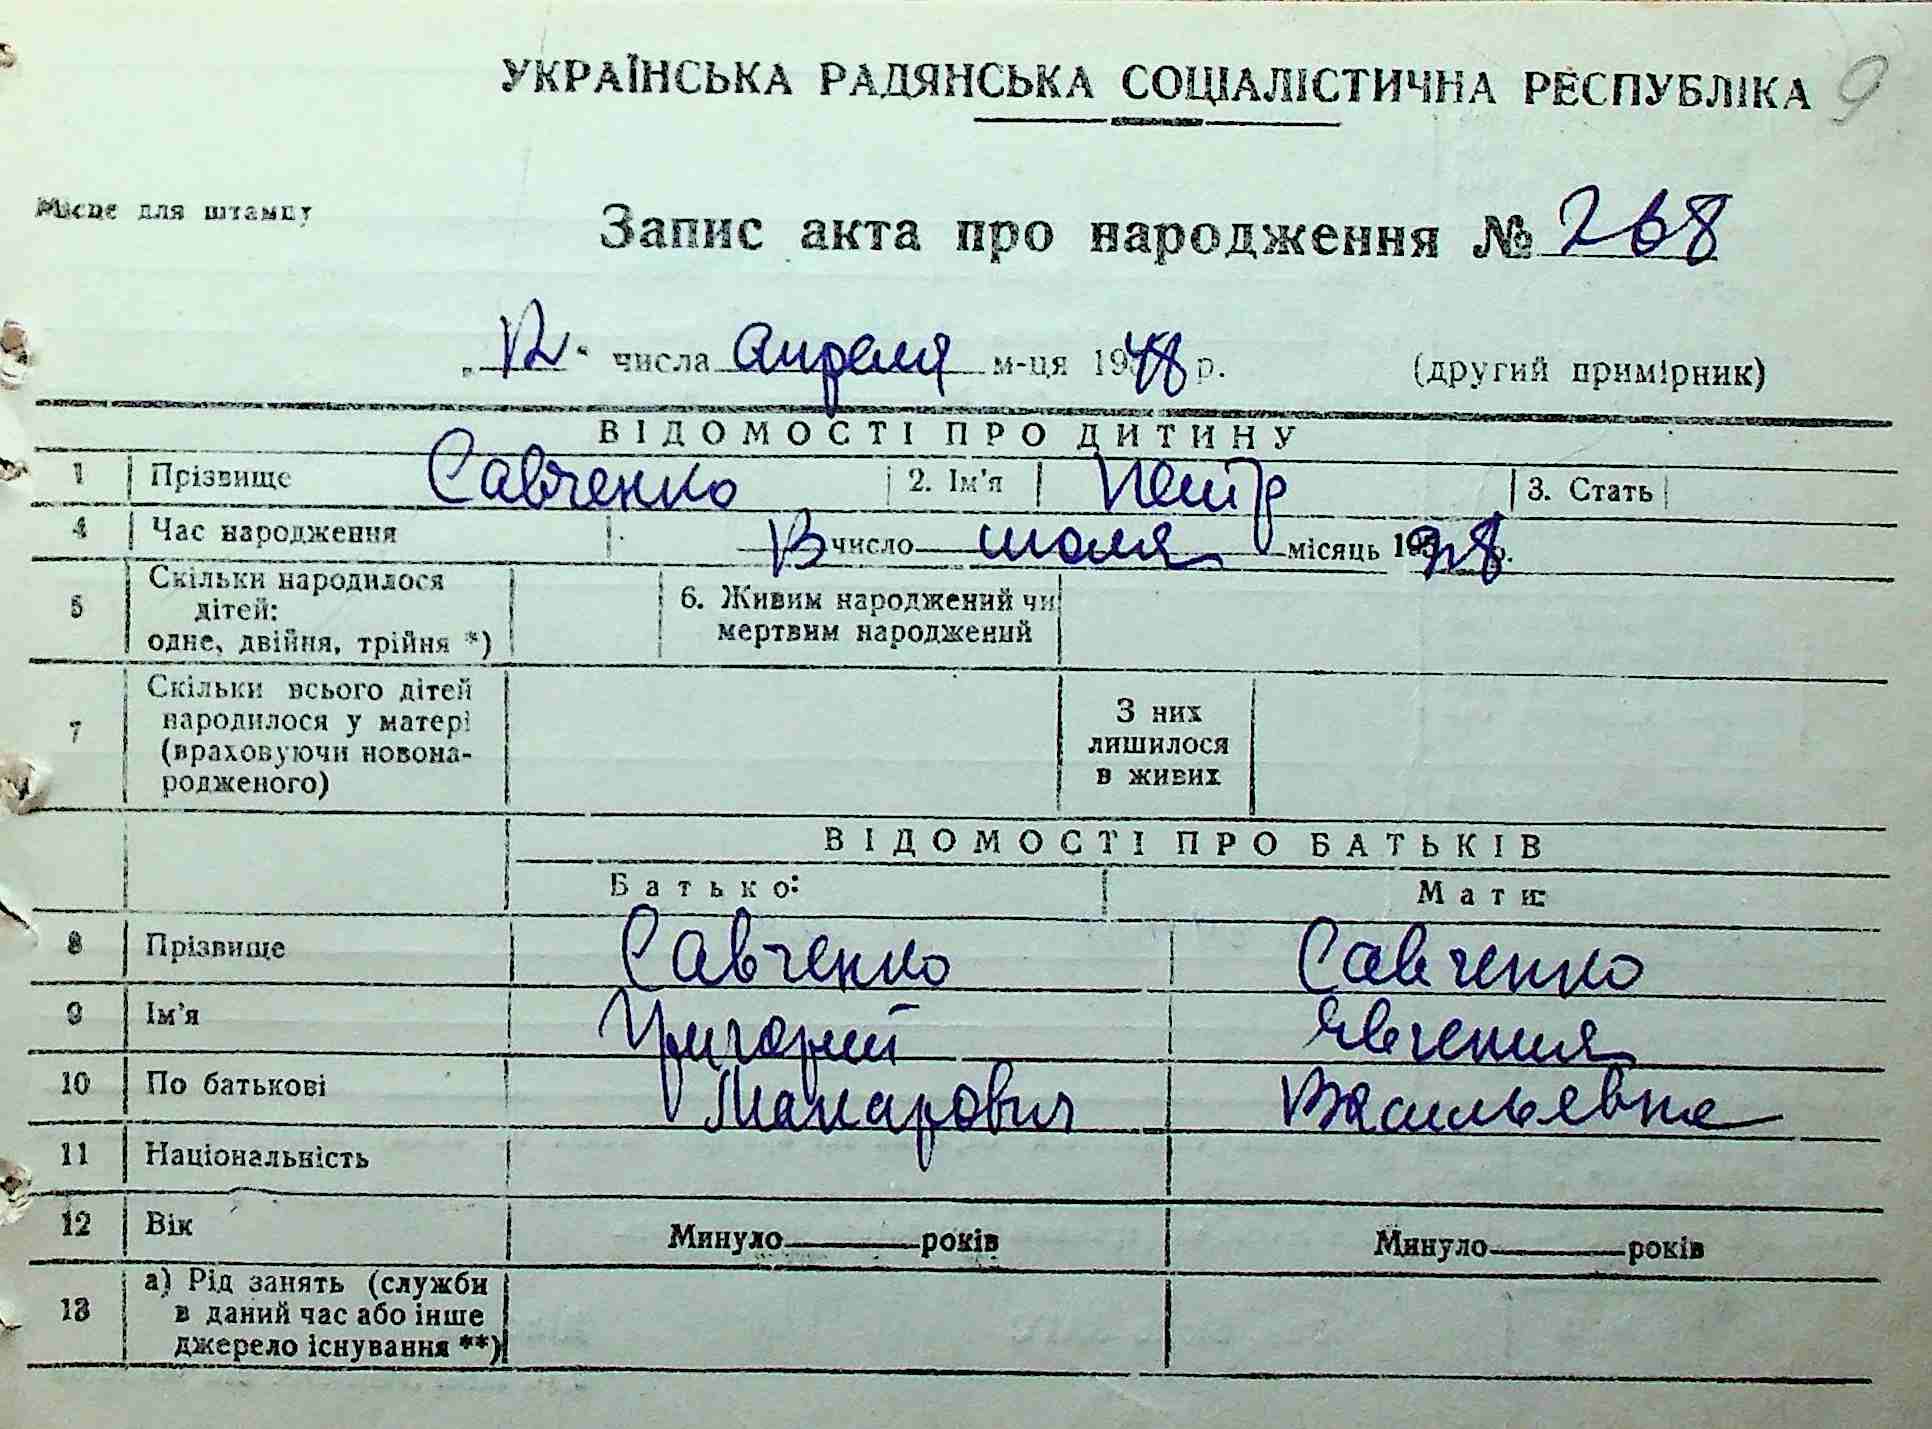 9
УКРАЇНСЬКА РАДЯНСЬКА СОЦІАЛІСТИЧНА РЕСПУБЛІКА
Місце для штампу
Запис акта про народження № 268
„12“ числа апреля м-ця 1948 р. (другий примірник)
ВІДОМОСТІ ПРО ДИТИНУ
1 Прізвище Савченко 2. Ім'я Петр 3. Стать
4 Час народження число июля місяць 1928 р.
5 Скільки народилося дітей: одне, двійня, трійня *) 6. Живим народжений чи мертвим народжений
7 Скільки всього дітей народилося у матері (враховуючи новонародженого) З них лишилося в живих
ВІДОМОСТІ ПРО БАТЬКІВ
Батько: Мати:
8 Прізвище Савченко Савченко
9 Ім'я Григорий Евгения
10 По батькові Макарович Васильевна
11 Національність
12 Вік Минуло років Минуло років
13 а) Рід занять (служби в даний час або інше джерело існування **)